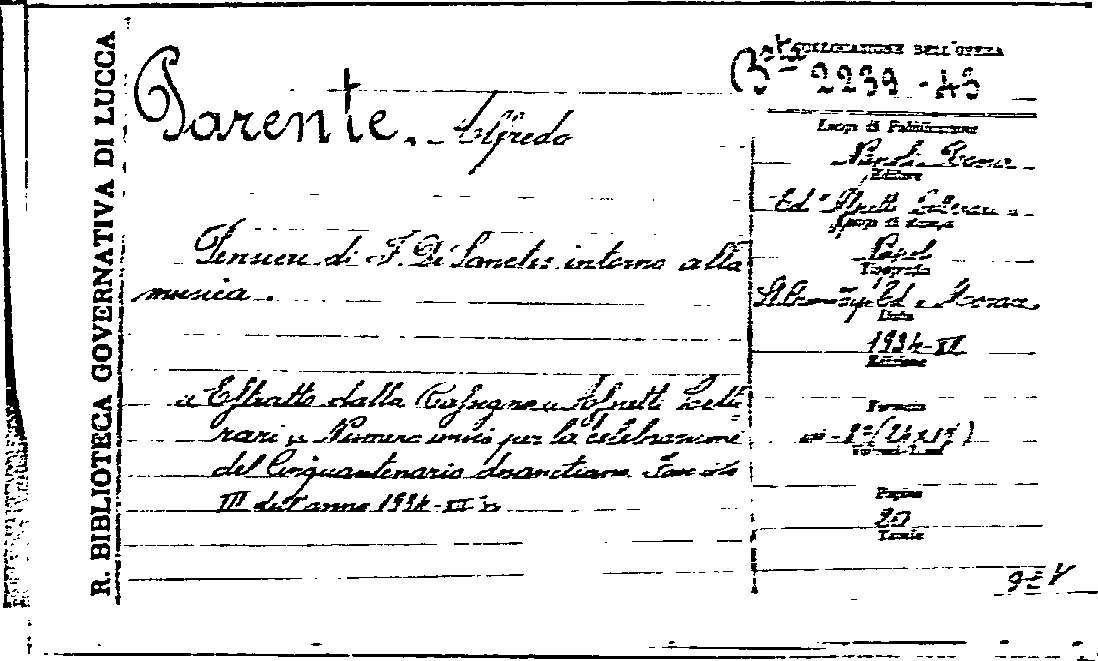 R. BIBLIOTECA GOVERNATIVA DI LUCCA
Parente. Alfredo
Pensieri di F. De Sanctis intorno alla
musica.
Estratto dalla Rassegna "Aspetti Lette
rari" Numero unico per la celebrazione
del Cinquantenario desanctiano
III dell'anno 1934-XII
COLLOCAZIONE DELL'OPERA
Bta 2239-43
Luogo di Pubblicazione
Napoli Roma
Editore
Ed. Aspetti Letterari
Luogo di stampa
Napoli
Tipografia
Data
1934-XII
Edizione
Formato
in-8°
Pagine
20
Tavole